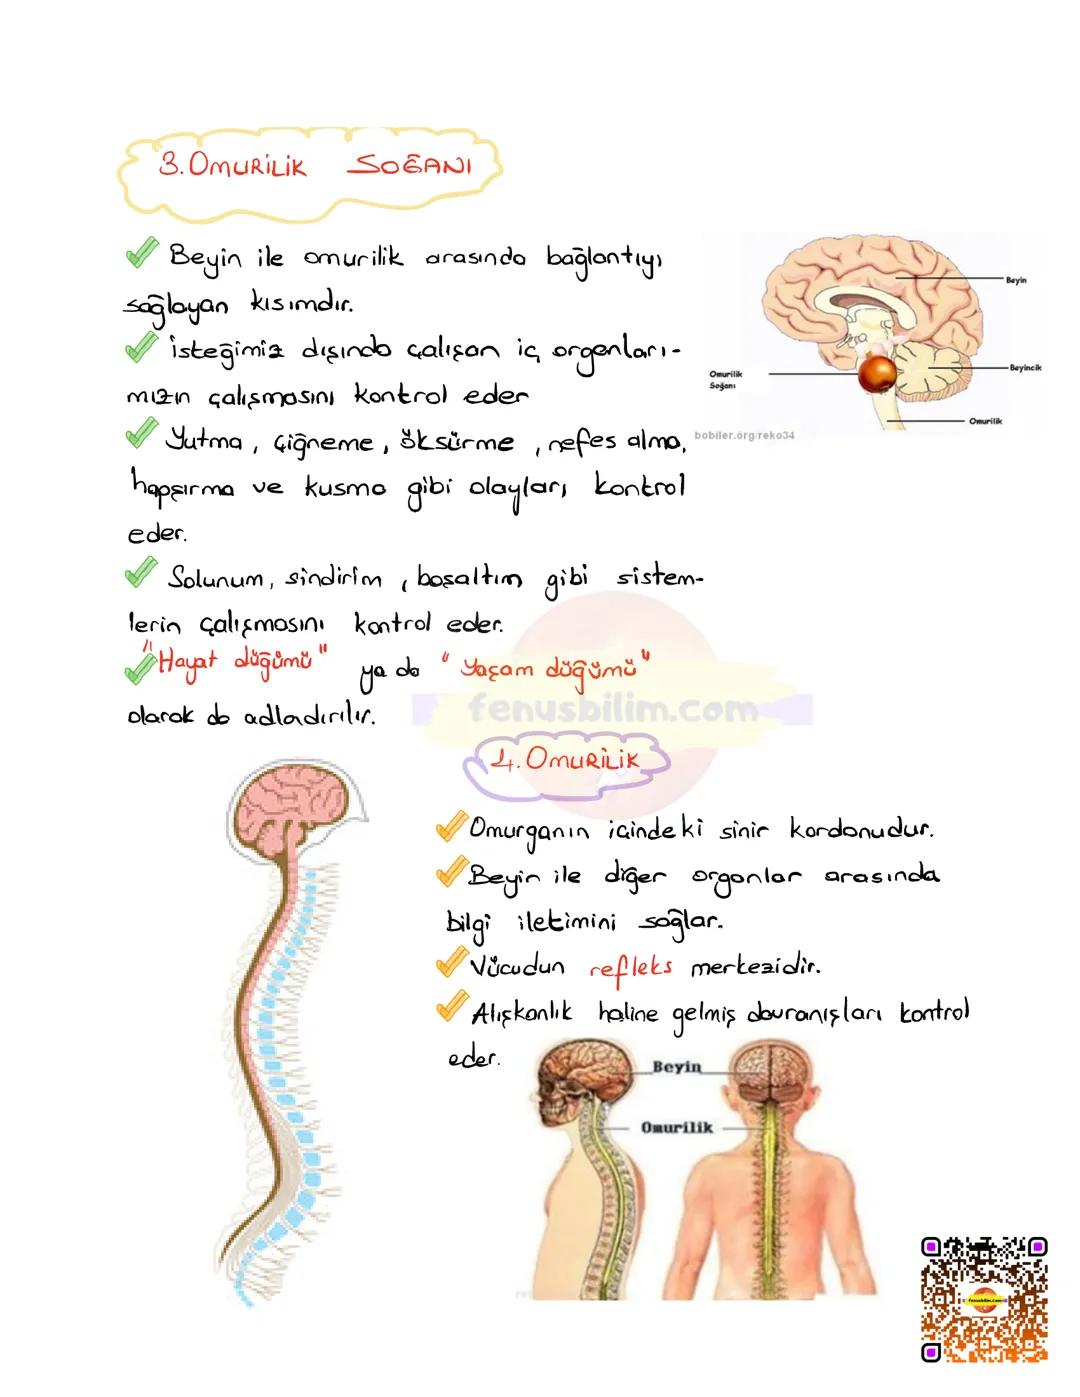 3. OMURİLİK SOĞANI
Beyin ile omurilik arasında bağlantıyı
sağlayan kısımdır.
isteğimiz dışında çalışan iç organları-
mızın çalışmasını kontrol eder
Yutma, çiğneme, öksürme, nefes alma,
hapşırma ve kusma gibi olayları kontrol
eder.
Solunum, sindirim, boşaltım gibi sistem-
lerin çalışmasını kontrol eder.
"Hayat düğümü" ya da "Yaşam düğümü"
olarak da adlandırılır.
Beyin
Omurilik
Soğanı
Beyincik
Omurilik
bobiler.org/reko34
fenusbilim.com
4. OMURİLİK
Omurganın içindeki sinir kordonudur.
Beyin ile diğer organlar arasında
bilgi iletimini sağlar.
Vücudun refleks merkezidir.
Alışkanlık haline gelmiş davranışları kontrol
eder.
Beyin
Omurilik
fenusbilim.com